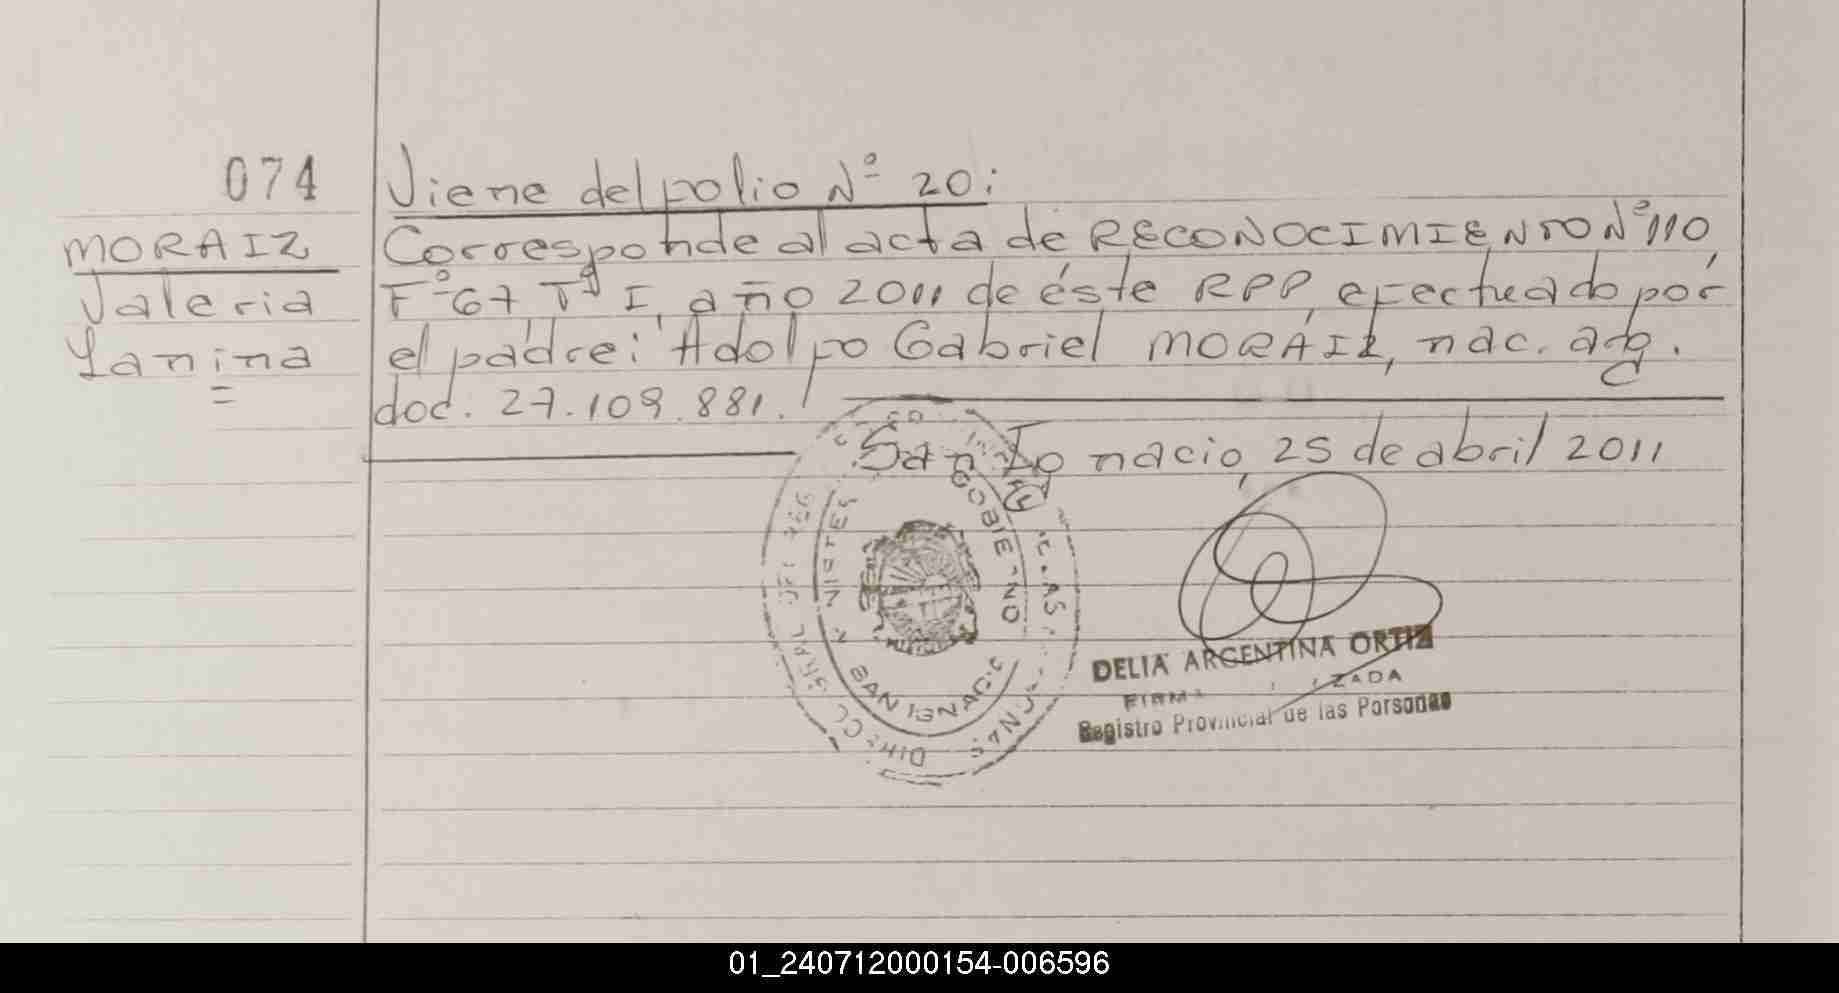 074
MORAIZ
Valeria
Yanina
=
Viene del folio Nº 20:
Corresponde al acta de RECONOCIMIENTO Nº 110,
Fº 67, Tº I, año 2011 de éste RPP, efectuado por
el padre: Adolfo Gabriel MORÁIZ, nac. arg.
doc. 27.109.881.
San Ignacio, 25 de abril 2011
GOBIERNO
SAN IGNACIO
DELIA ARGENTINA ORTIZ
Registro Provincial de las Personas
01_240712000154-006596